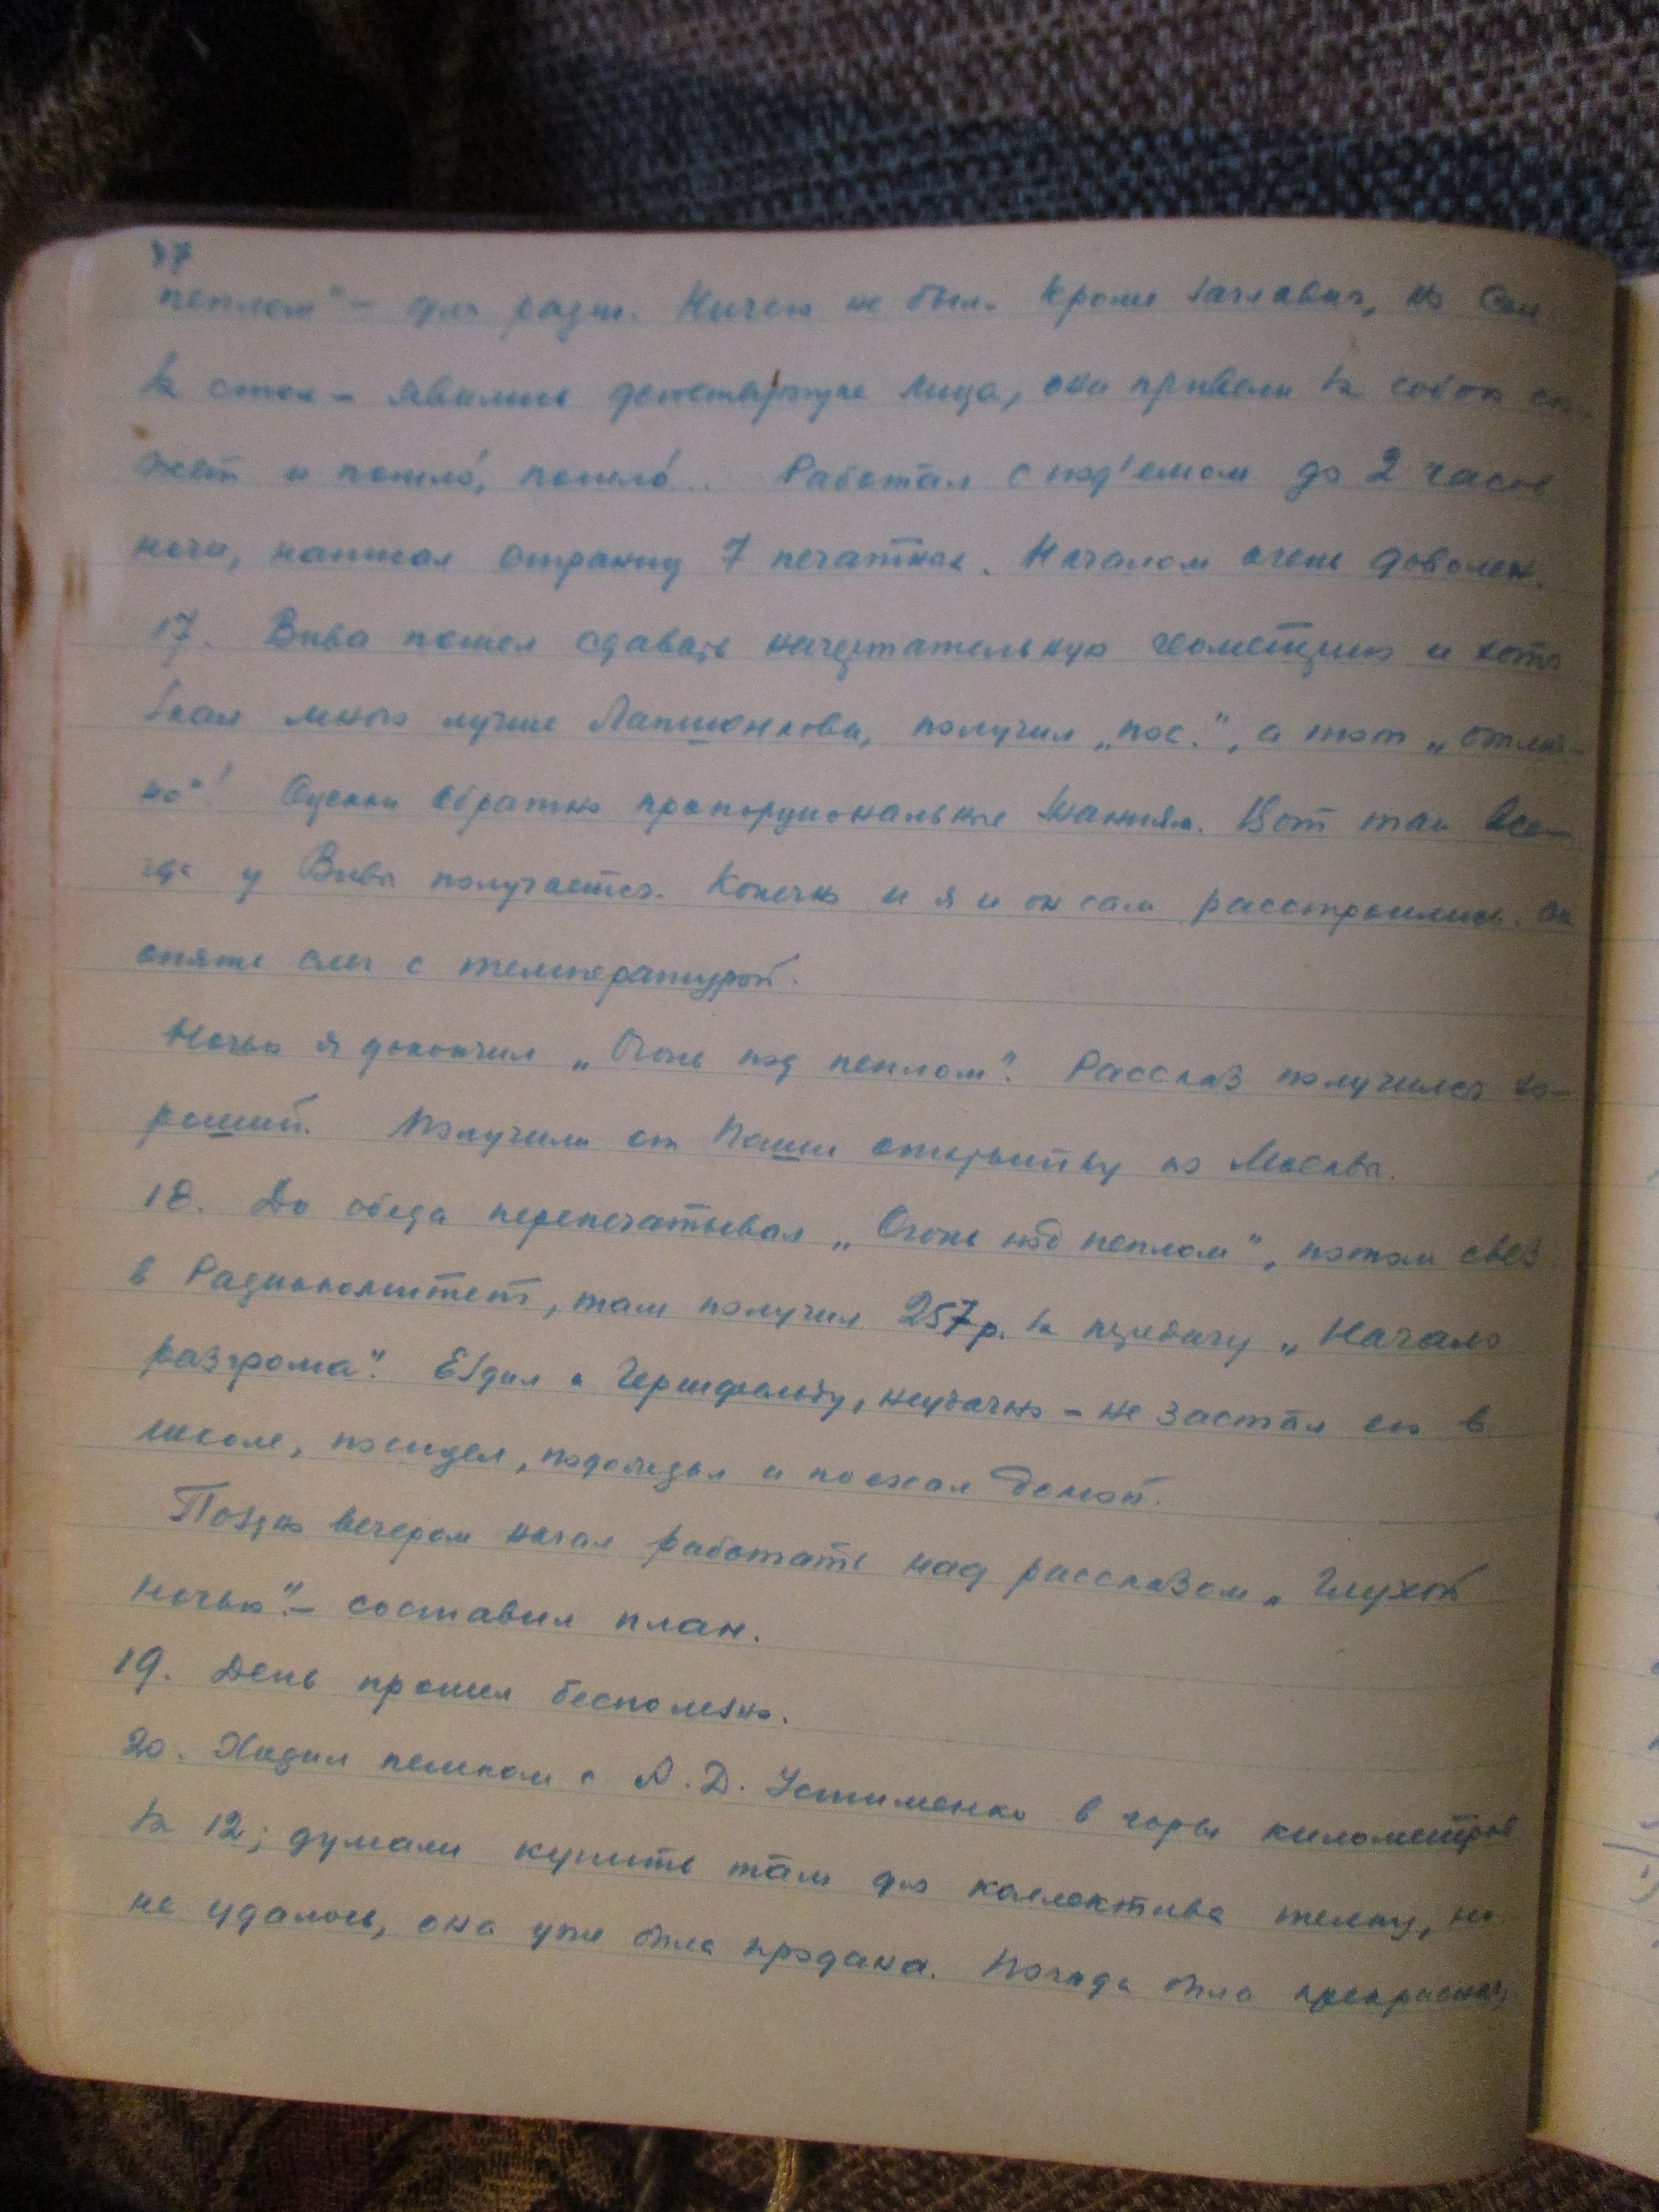 87
пеплом" – для радио. Ничего не было кроме заглавия, но сел
за стол – явились действующие лица, они привели за собой сю-
жет и пошло́, пошло́... Работал с под'емом до 2 часов
ночи, написал страниц 7 печатных. Началом очень доволен.
17. Вива пошел сдавать начертательную геометрию и хотя
знал много лучше Лапшонкова, получил „пос.", а тот „отлич-
но"! Оценки обратно пропорциональные знаниям. Вот так все-
гда у Вивы получается. Конечно и я и он сам расстроились. Он
опять слег с температурой.
Ночью я докончил „Огонь под пеплом". Рассказ получился хо-
роший. Получили от Паши открытку из Москвы.
18. До обеда перепечатывал „Огонь под пеплом", потом свез
в Радиокомитет, там получил 257 р. за передачу „Начало
разгрома". Ездил к Гершфельду, неудачно – не застал его в
школе, посидел, подождал и поехал домой.
Поздно вечером начал работать над рассказом „Глухой
ночью" – составил план.
19. День прошел бесполезно.
20. Ходил пешком с А. Д. Устименко в горы километров
за 12; думали купить там для коллектива телку, но
не удалось, она уже была продана. Погода была прекрасная,